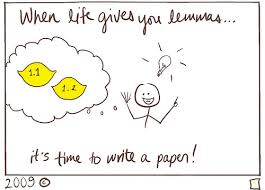 When life gives you lemmas...
1.1
1.2
it's time to write a paper!
2009